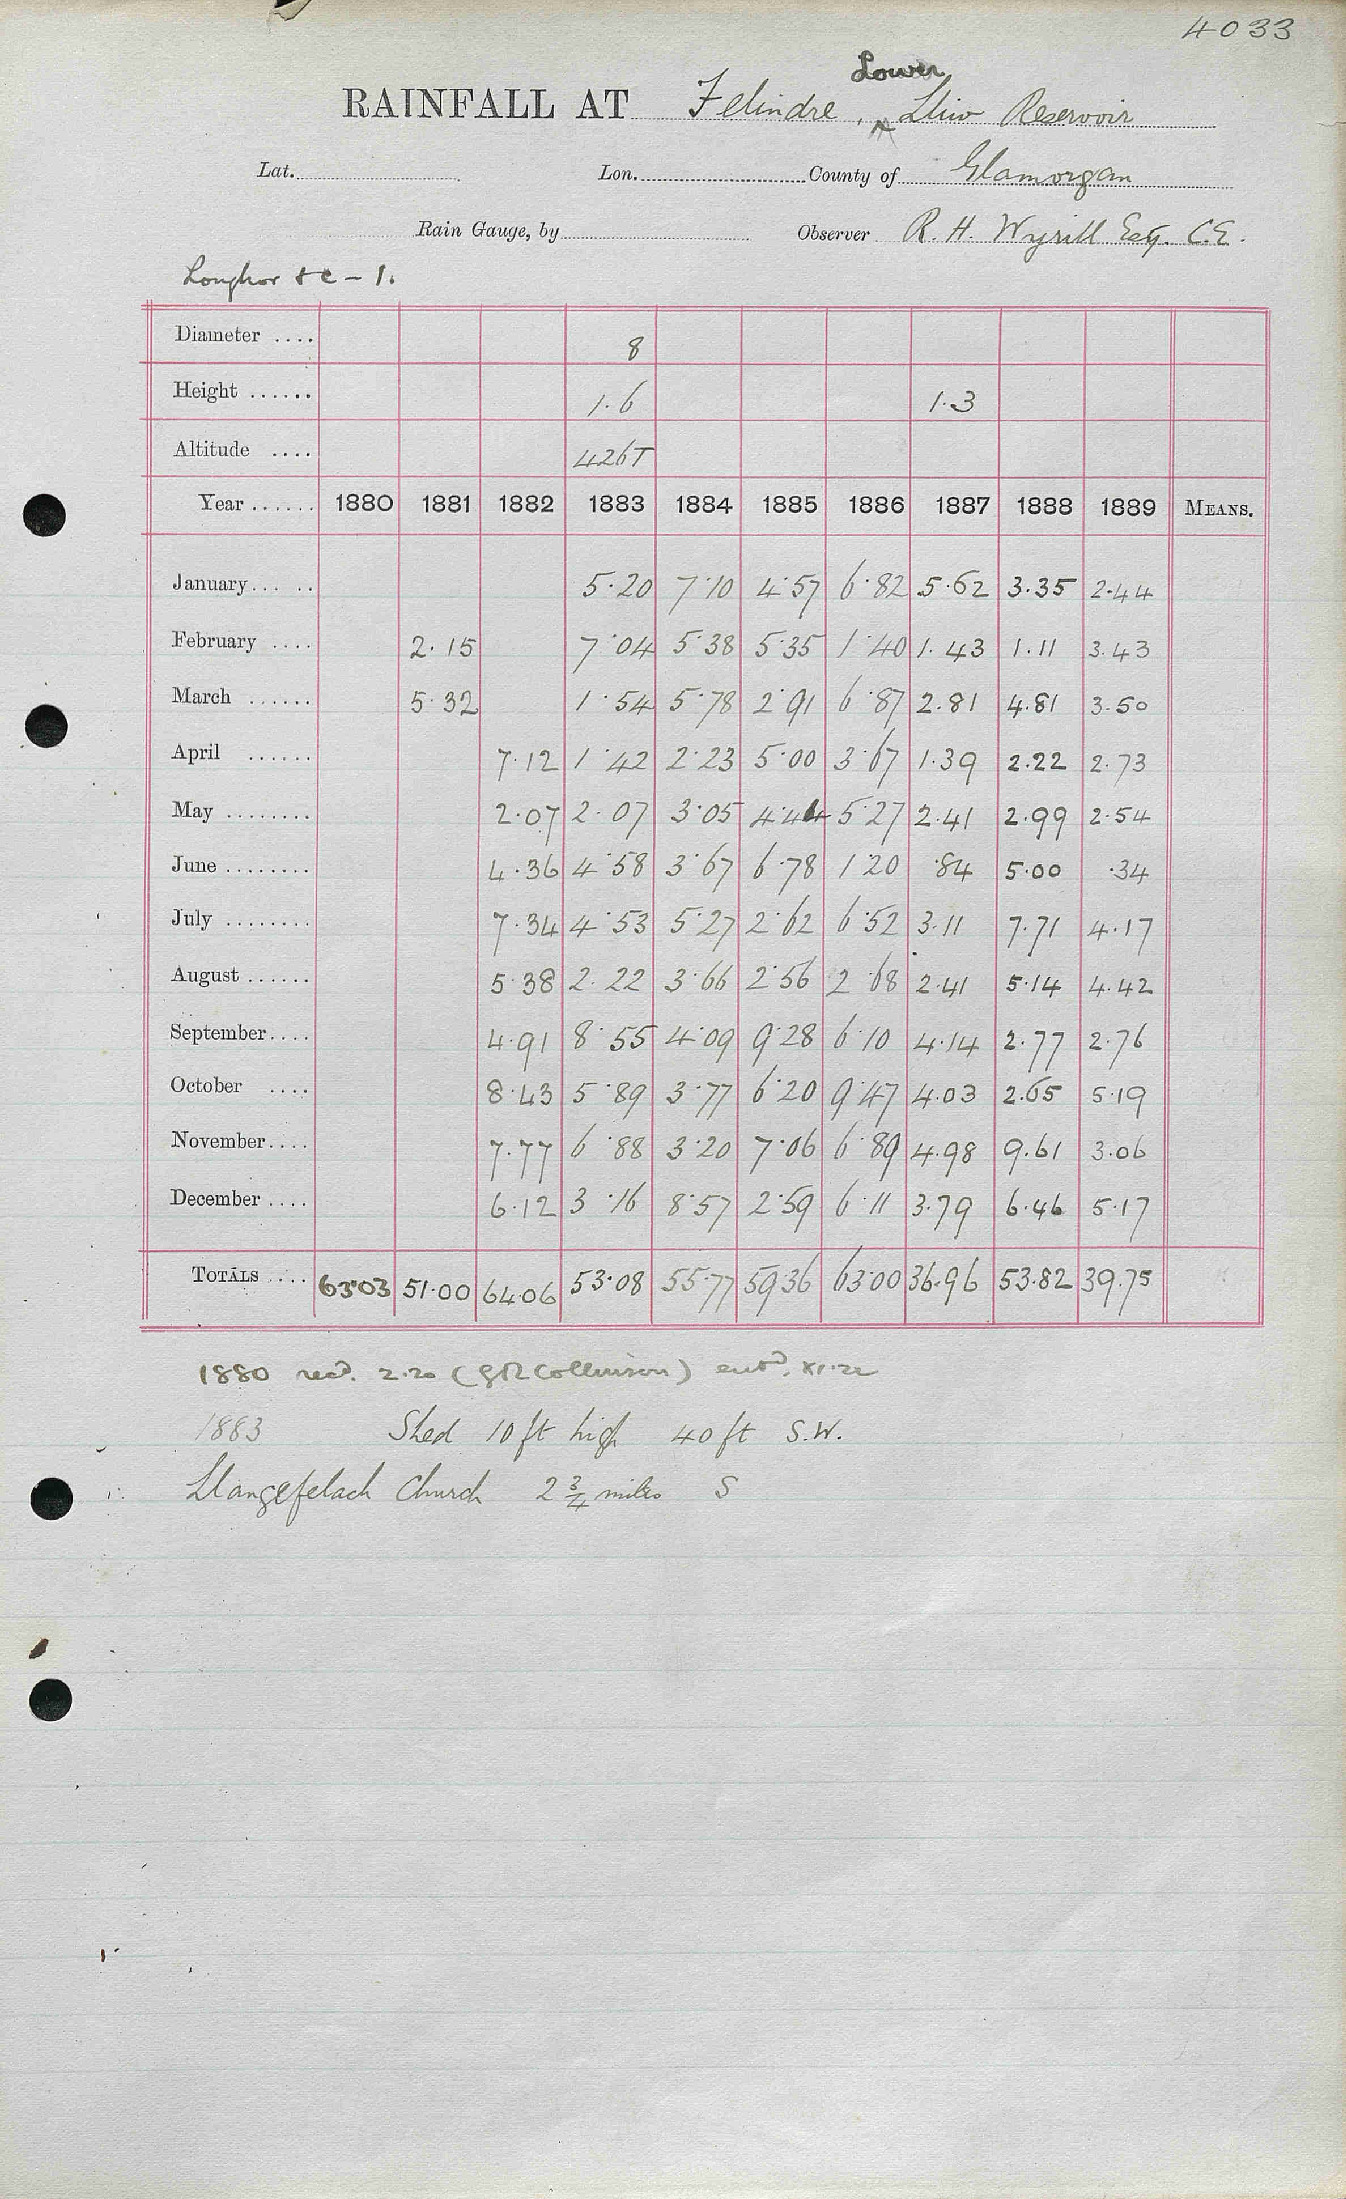 4033
Lower
RAINFALL AT Felindre, ^ Lliw Reservoir
Lat. Lon. County of Glamorgan
Rain Gauge, by Observer R. H. Wyrill Esq. C.E.
Loughor &c - 1.
Diameter .... 8
Height ...... 1.6 1.3
Altitude .... 426T
Year ...... 1880 1881 1882 1883 1884 1885 1886 1887 1888 1889 MEANS.
January ... .. 5.20 7.10 4.57 6.82 5.62 3.35 2.44
February .... 2.15 7.04 5.38 5.35 1.40 1.43 1.11 3.43
March ...... 5.32 1.54 5.78 2.91 6.87 2.81 4.81 3.50
April ...... 7.12 1.42 2.23 5.00 3.67 1.39 2.22 2.73
May ........ 2.07 2.07 3.05 4.44 5.27 2.41 2.99 2.54
June ........ 4.36 4.58 3.67 6.78 1.20 .84 5.00 .34
July ........ 7.34 4.53 5.27 2.62 6.52 3.11 7.71 4.17
August ...... 5.38 2.22 3.66 2.56 2.68 2.41 5.14 4.42
September .... 4.91 8.55 4.09 9.28 6.10 4.14 2.77 2.76
October .... 8.43 5.89 3.77 6.20 9.47 4.03 2.65 5.19
November .... 7.77 6.88 3.20 7.06 6.89 4.98 9.61 3.06
December .... 6.12 3.16 8.57 2.59 6.11 3.79 6.46 5.17
TOTALS .... 63.03 51.00 64.06 53.08 55.77 59.36 63.00 36.96 53.82 39.75
1880 recd. 2.20 (G R Collinson) entd. XI.22
1883 Shed 10 ft high 40 ft S.W.
Llangefelach Church 2 3/4 miles S